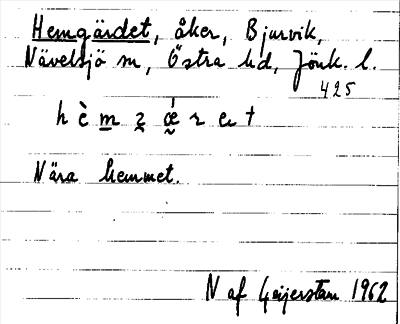 Hemgärdet, åker, Bjurvik,
Nävelsjö sn, Östra hd, Jönk. l.
425
h è m
Nära hemmet.
N af Geijerstam 1962